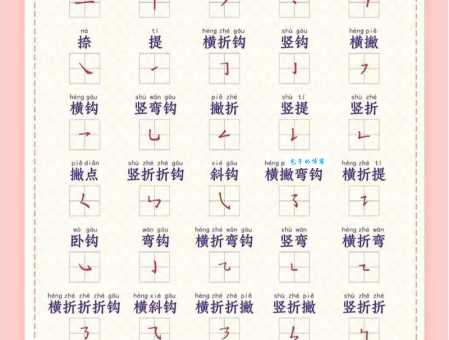 nà tí héng zhé gōu shù gōu héng piě
捺 提 横折钩 竖钩 横撇
héng gōu shù wān gōu piě zhé shù tí shù zhé
横钩 竖弯钩 撇折 竖提 竖折
piě diǎn shù zhé zhé gōu xié gōu héng p héng zhé tí
撇点 竖折折钩 斜钩 横撇弯钩 横折提
wò gōu wān gōu héng zhé wān gōu shù wān héng zhé wān
卧钩 弯钩 横折弯钩 竖弯 横折弯
héng zhé zhé zhé gōu héng xié gōu héng zhé zhé piě shù zhé piě shù zhé zhé
横折折折钩 横斜钩 横折折撇 竖折撇 竖折折